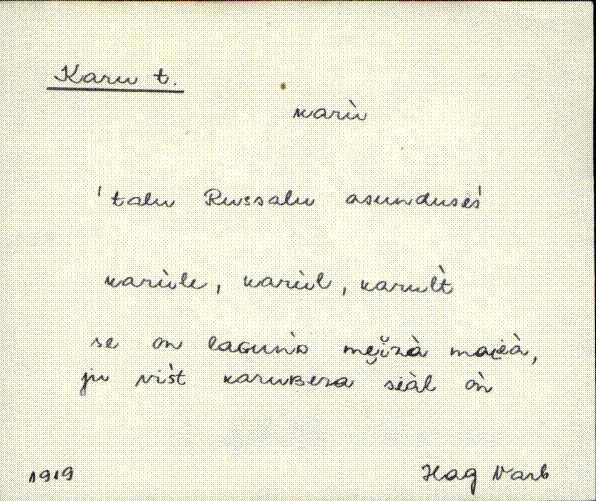 Karu t.
karù
'talu Russalu asunduses'
karùle, karùl, karult̀
se on laGuǹD meĭzà maià,
ju vis̀t karuBera siàl òn
1919
Hag Varb